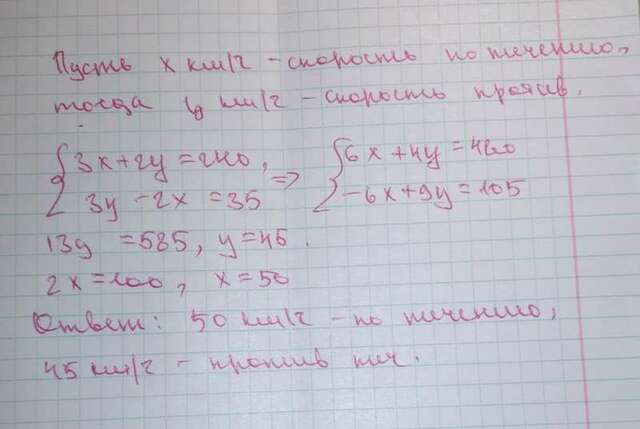 Пусть x км/ч - скорость по течению,
тогда y км/ч - скорость против.
{3x+2y=240, => {6x+4y=480
3y-2x=35 -6x+9y=105
13y=585, y=45.
2x=100, x=50
Ответ: 50 км/ч - по течению,
45 км/ч - против теч.